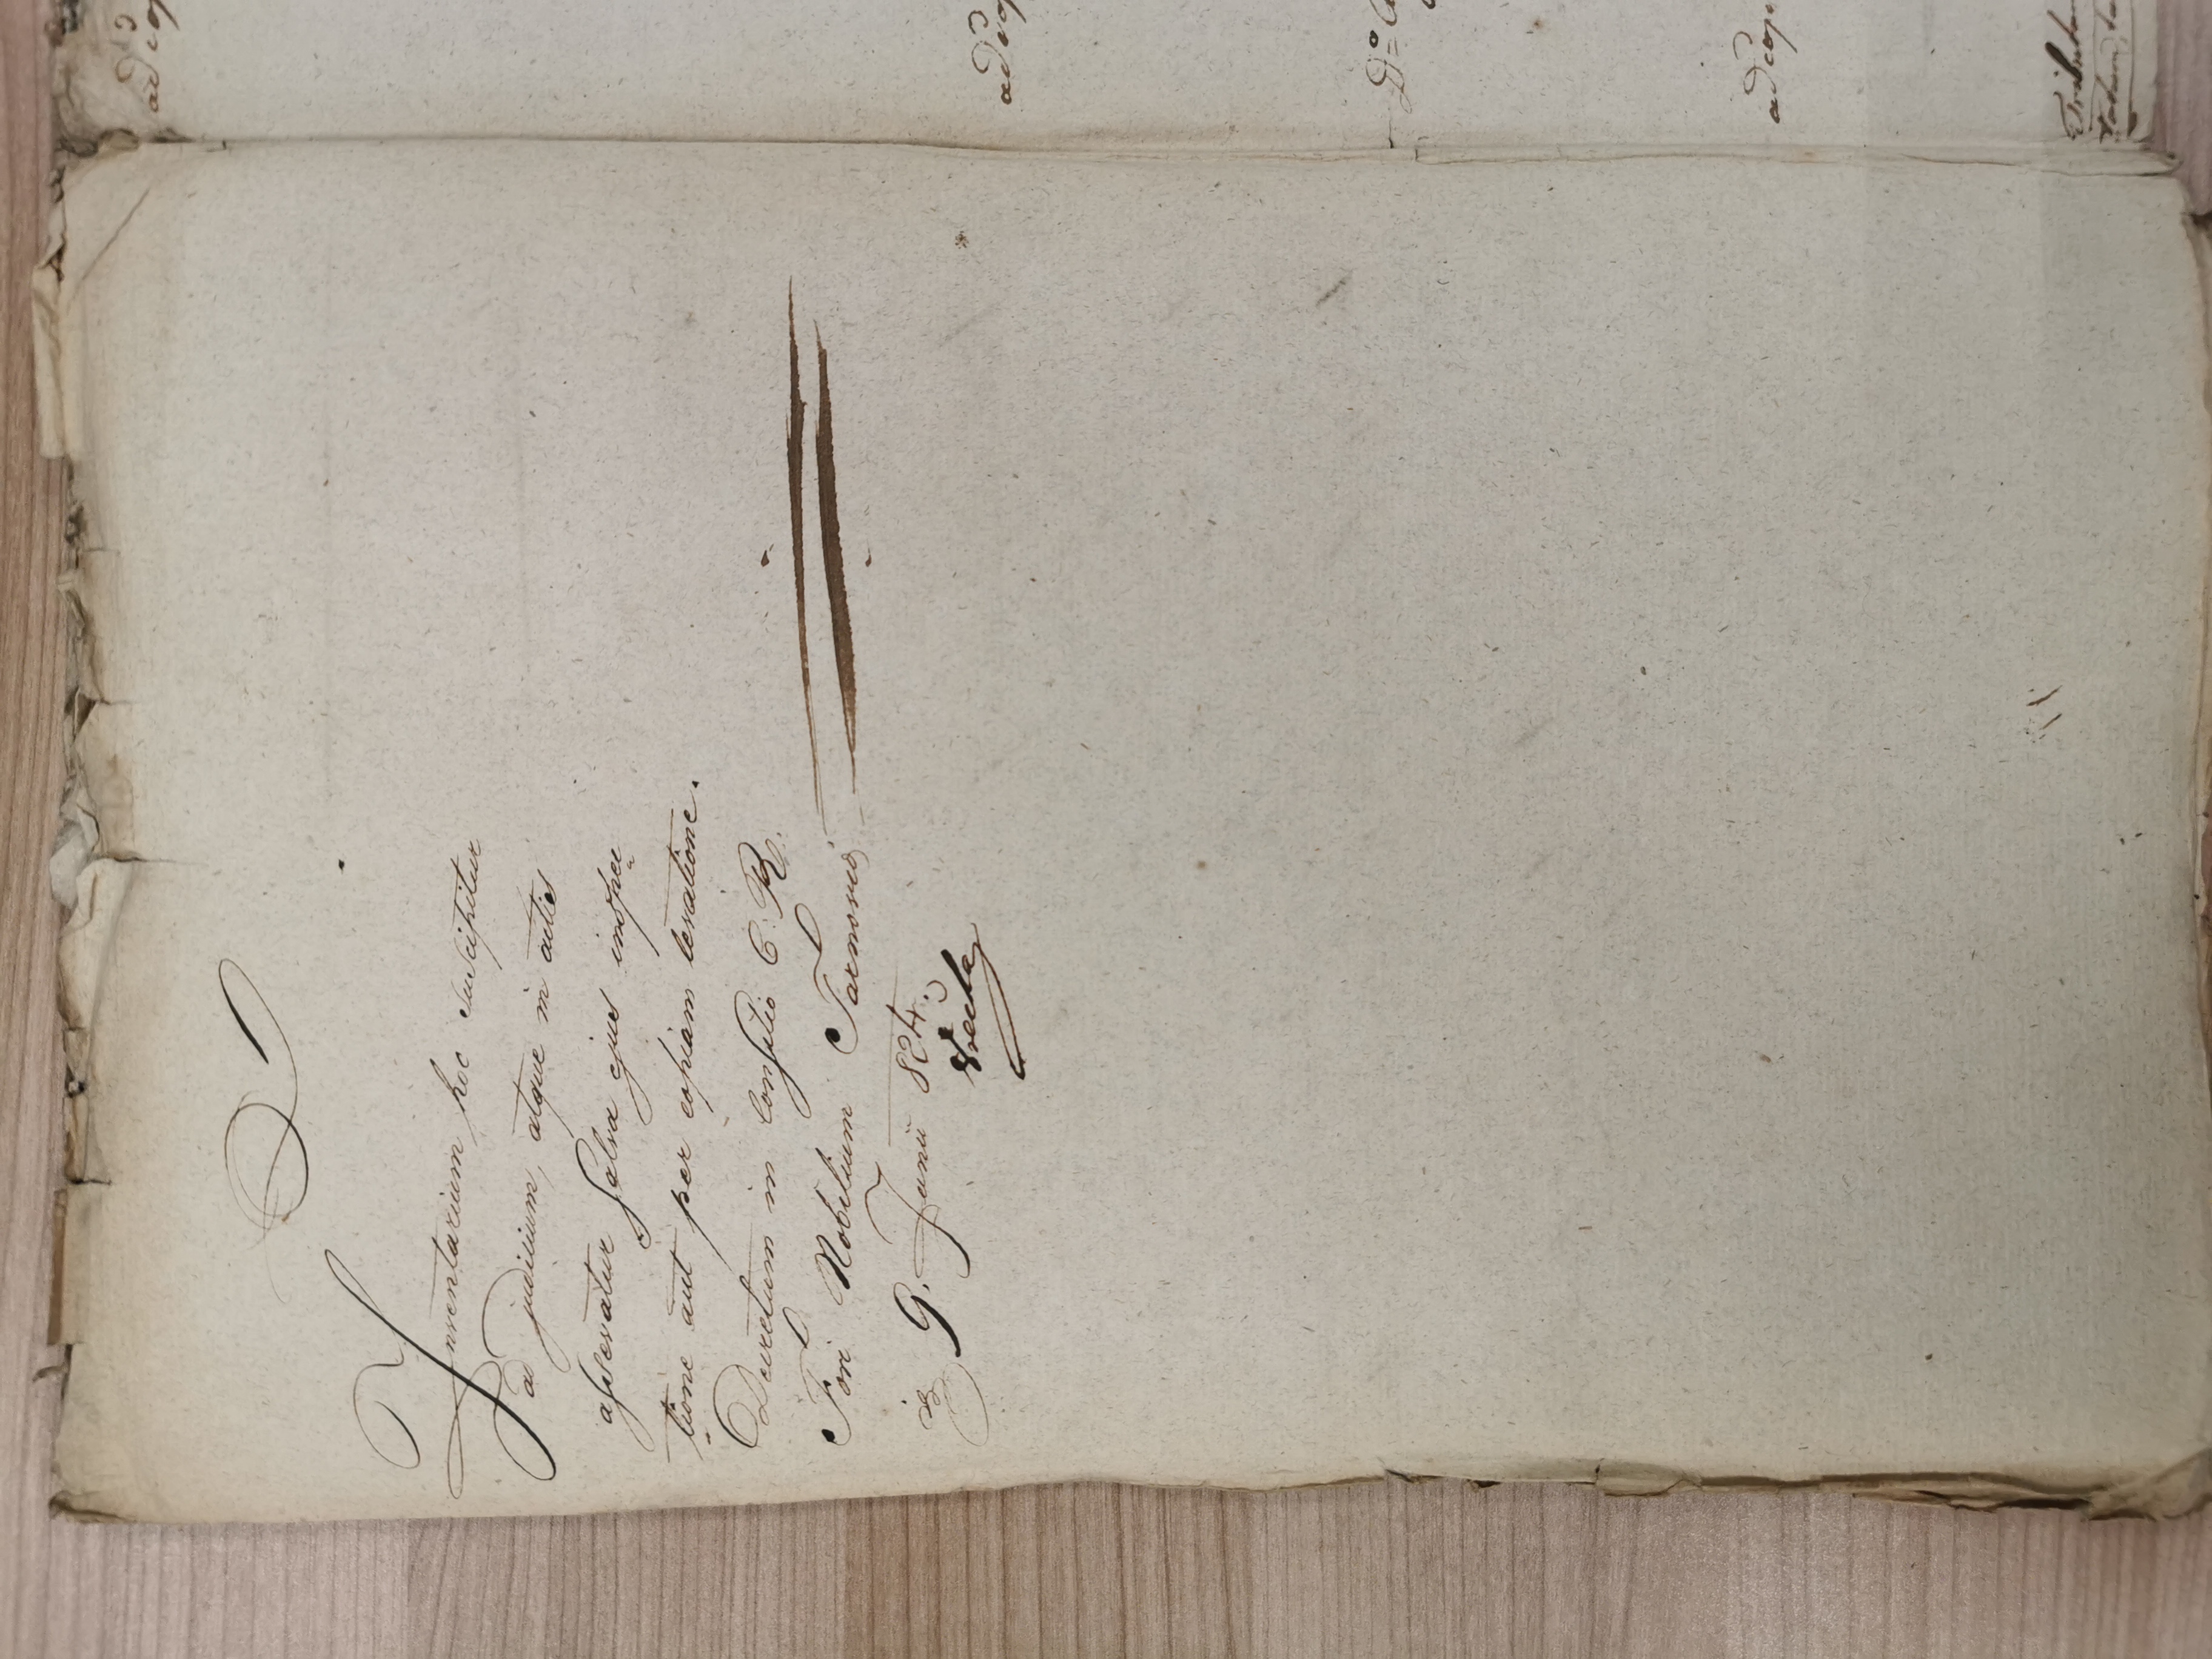 Inventarium hoc suscipitur
ad judicium, atque in actis
asservatur salva ejus inspec
tione aut per copiam levatione.
Decretum in Consilio C. R.
Fori Nobilium Tarnoviæ
9. Junii 824.
ad
ad cop
D°=
ad cop